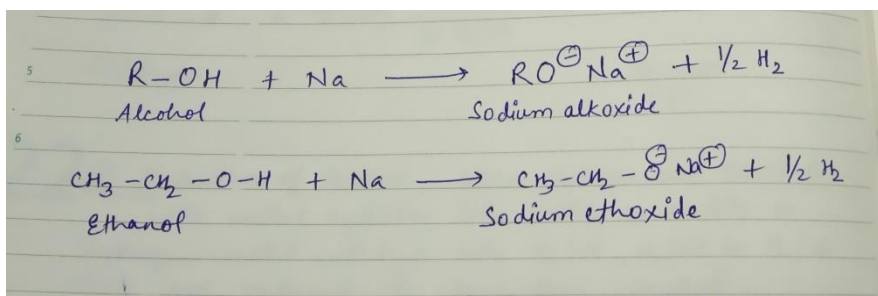 5 R-OH + Na ⟶ RO⊖ Na⊕ + 1/2 H2
Alcohol Sodium alkoxide
6
CH3-CH2-O-H + Na ⟶ CH3-CH2-O⊖ Na⊕ + 1/2 H2
Ethanol Sodium ethoxide